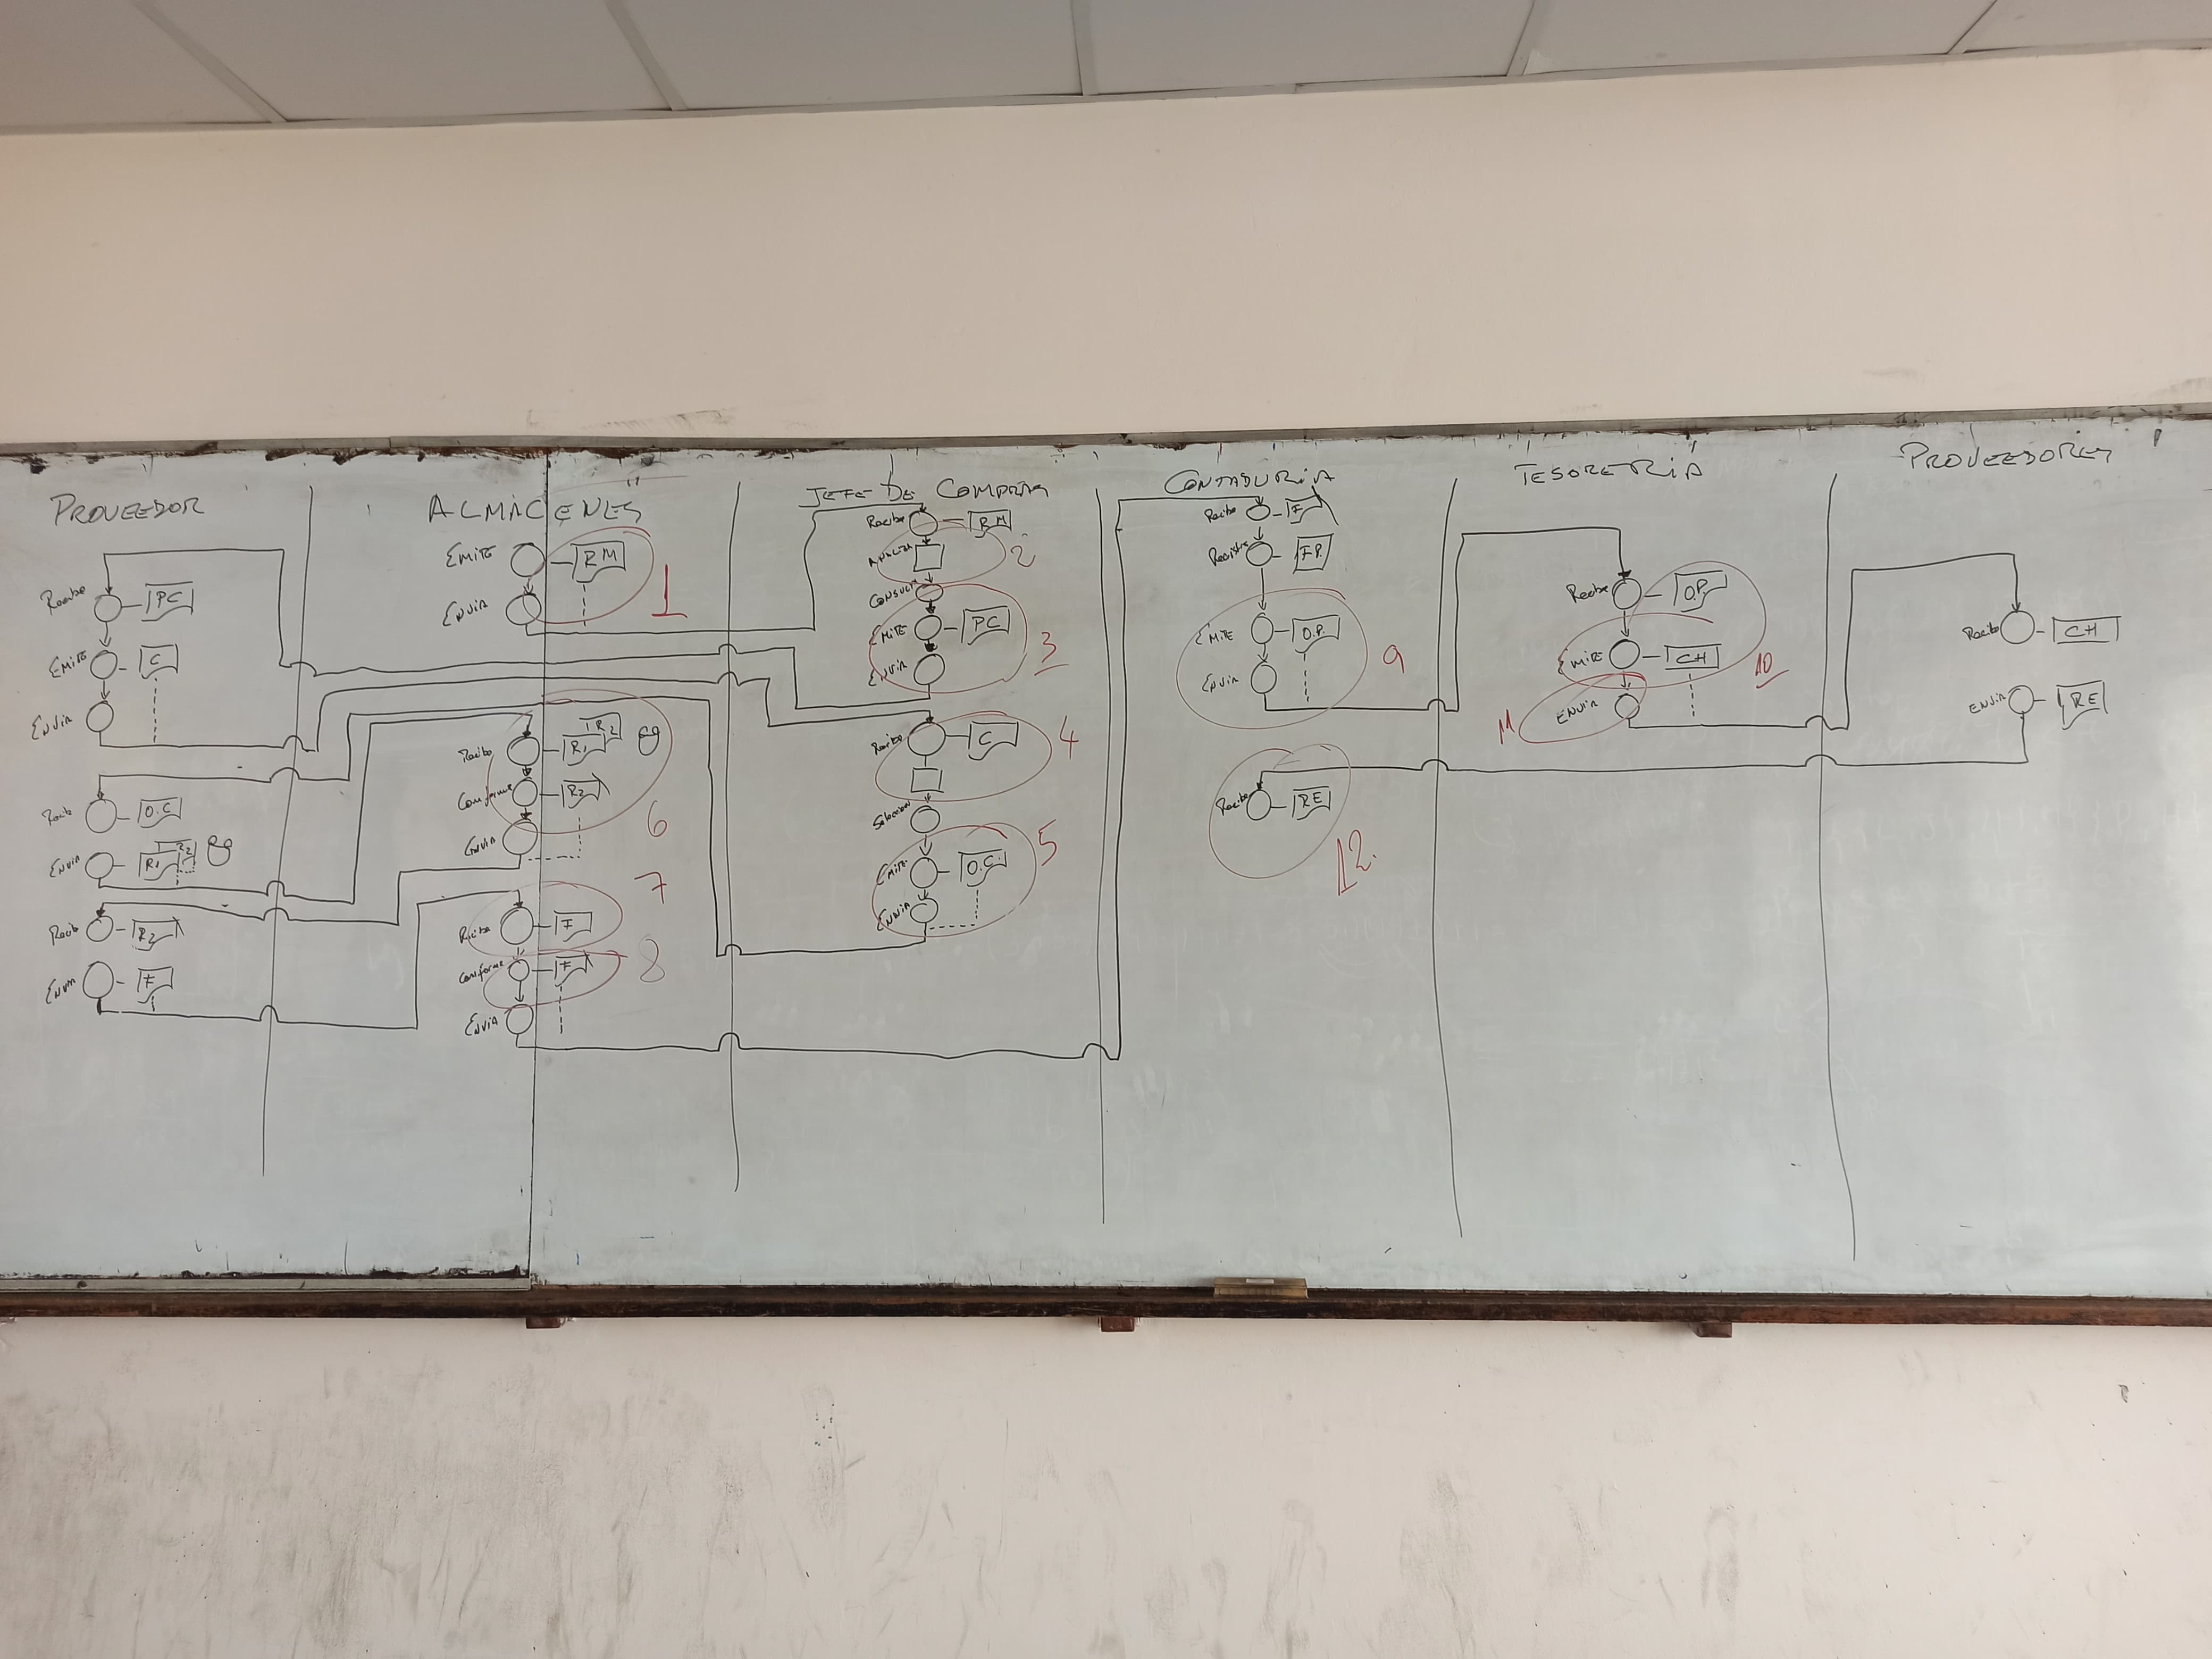 PROVEEDOR
Recibe PC
Emite C
Envia
Recibe O.C
Envia R1 R2
Recibe R2
Envia F
ALMACENES
Emite RM
Envia
1
Recibe R1 R2
Conforma R2
Envia
6
7
Recibe F
Conforma F
8
Envia
JEFE DE COMPRAS
Recibe RM
Analiza
2
Consulta
Emite PC
3
Envia
Recibe C
4
Seleccion
5
Emite O.C.
Envia
CONTADURIA
Recibe F
Registra FP.
Emite O.P.
9
Envia
Recibe RE
12.
TESORERIA
Recibe O.P.
Emite CH
10
11
Envia
PROVEEDORES
Recibe CH
Envia RE